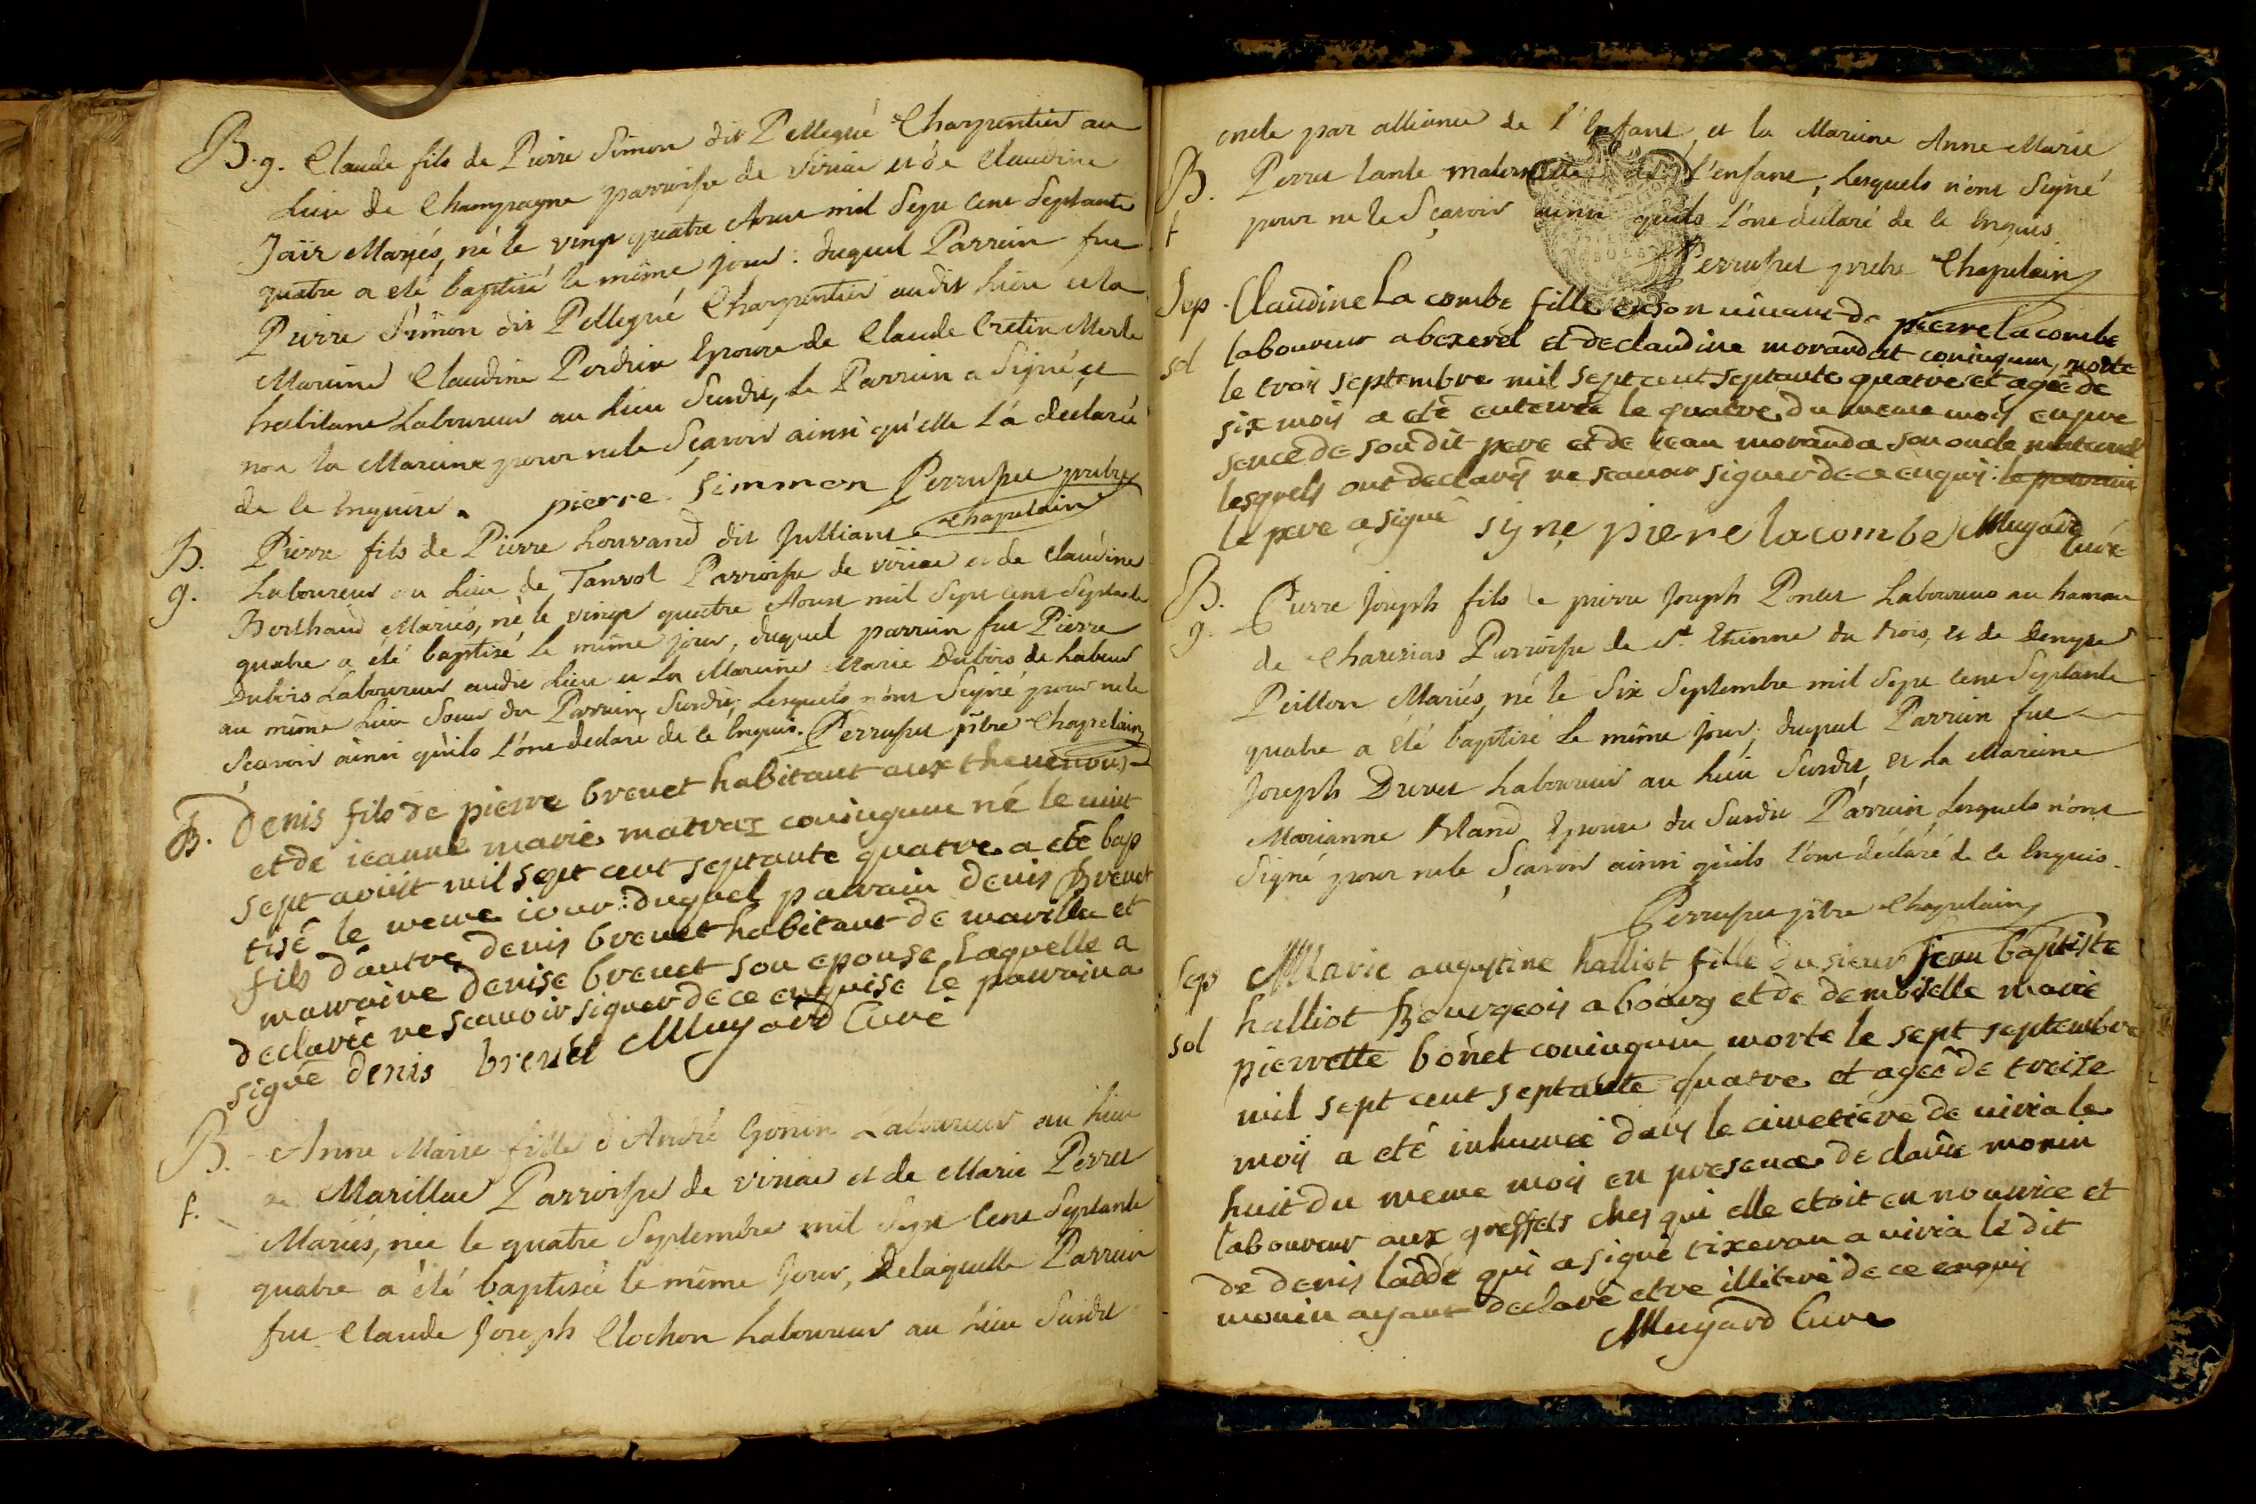 B. g. Claude fils de Pierre Simon dit Pellegué Charpentier au
Lieu de Champagne parroisse de Viriac et de Claudine
Jaïr Mariés, né le vingt quatre Aout mil Sept Cent Septante
quatre a eté baptisé le même jour : duquel Parrein fut
Pierre Simon dit Pellegué Charpentier audit Lieu et la
Mareine Claudine Perdrix Epouse de Claude Cretin Merle
habitant Laboureur au Lieu Susdit, le Parrein a Signé et
non la Mareine pour ne le Sçavoir ainsi qu'elle l'a declaré
de ce Enquise. pierre simmon Perruset prêtre
Chapelain
B. Pierre fils de Pierre Louvand dit Jullianт
g. Laboureur au Lieu de Tanvol Parroisse de viriac et de Claudine
Berthaud Mariés, né le vingt quatre Aoust mil Sept Cent Septante
quatre a eté baptisé le même jour, duquel parrein fut Pierre
Dubois Laboureur audit Lieu et La Mareine Marie Dubois de Labeur
au même Lieu Soeur du Parrein Susdit, Lesquels n'ont Signé pour ne le
Sçavoir ainsi qu'ils l'ont declaré de ce Enquis. Perruset prêtre Chapelain
B. Denis fils de pierre brevet habitant aux thevenons
et de ieanne marie matrax coniugum né le vint
sept aoust mil sept cent septante quatre a eté bap
tisé le meme iour : duquel parrain denis Brevet
fils d'autre denis brevet habitant de marillia et
marraine denise brevet son epouse laquelle a
declaré ne scavoir signer de ce enquise le parrain a
signé denis brevet Muyard Curé
B. Anne Marie fille d'André Gonin Laboureur au Lieu
f. de Marillac Parroisse de viriac et de Marie Perret
Mariés, née le quatre Septembre mil Sept Cent Septante
quatre a été baptisée le même Jour, Delaquelle Parrein
fut Claude Joseph Clochon Laboureur au Lieu Susdit
oncle par alliance de l'Enfant, et la Mareine Anne Marie
B. Perret tante maternelle de l'enfant, Lesquels n'ont Signé
f pour ne le Sçavoir ainsi qu'ils l'ont declaré de ce Enquis
Perruset prêtre Chapelain
Sep. Claudine La combe fille en son vivant de pierre la combe
sol laboureur a bexerel et de claudine morandat coniugum, morte
le trois septembre mil sept cent septante quatre et agée de
six mois a eté enterrée le quatre du meme mois en pre
sence de son dit pere et de iean moranda son oncle maternel
lesquels ont declarés ne scavoir signer de ce enquis : le parrain
le pere a signé signe piere lacombe Muyard
Curé
B. Pierre Joseph fils de pierre Joseph Poncet Laboureur au hameau
g. de Charisias Parroisse de St. Etienne du bois, et de Denyse
Peillon Mariés, né le Six Septembre mil Sept Cent Septante
quatre a été baptisé le même jour, duquel Parrein fut
Joseph Druet Laboureur au Lieu Susdit, et la Mareine
Marianne Bland Epouse du Susdit Parrein, Lesquels n'ont
Signé pour ne le Sçavoir ainsi qu'ils l'ont déclaré de ce Enquis.
Perruset prêtre Chapelain
Sep Marie augustine halliot fille du sieur Jean baptiste
sol halliot Bourgeois a bourg et de demoiselle marie
pierrette bonet coniugum morte le sept septembre
mil sept cent septante quatre et agée de treize
mois a eté inhumée dans le cimetiere de viria le
huit du meme mois en presence de claude monin
laboureur aux greffets ches qui elle etoit en nourrice et
de denis laddé qui a signé tixeran a viria le dit
monin ayant declaré etre illiteré de ce enquis
Muyard Curé